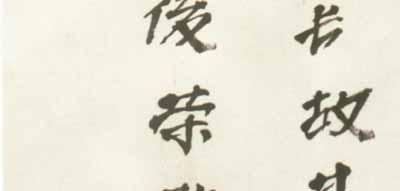 长故
俊荣